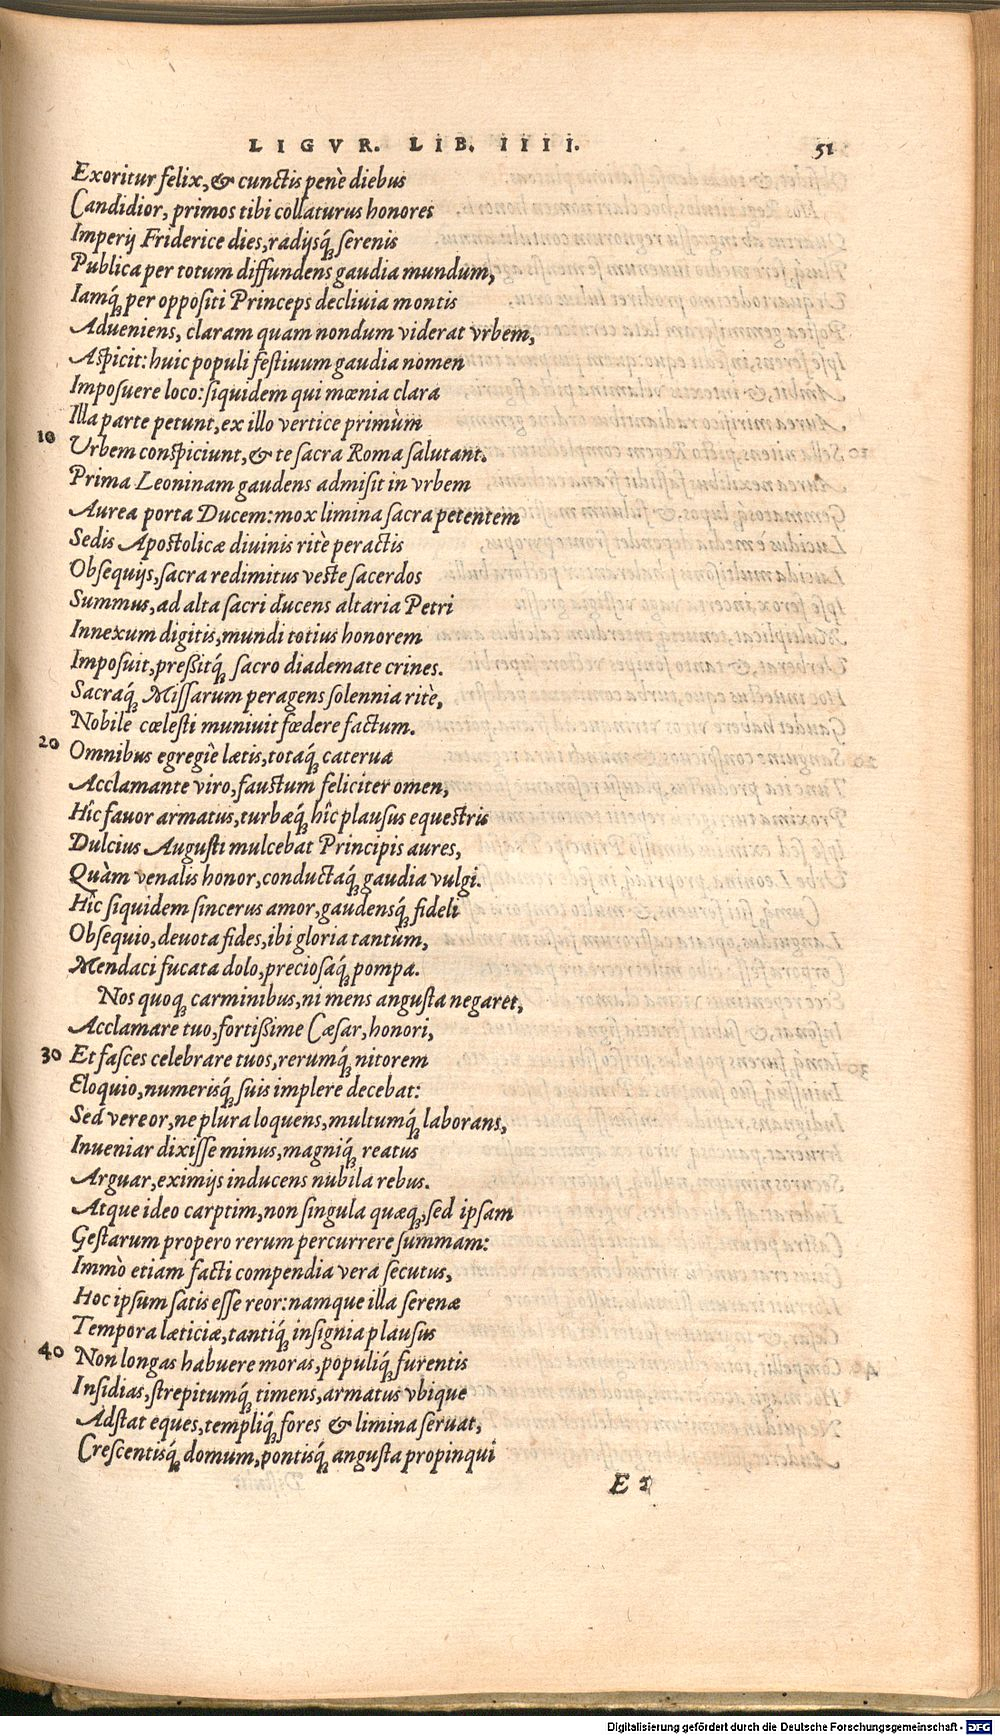 LIGVR. LIB. IIII. 51
Exoritur felix, & cunctis penè diebus
Candidior, primos tibi collaturus honores
Imperij Friderice dies, radijsq́; serenis
Publica per totum diffundens gaudia mundum,
Iamq́; per oppositi Princeps declivia montis
Adueniens, claram quam nondum viderat vrbem,
Aspicit: huic populi festiuum gaudia nomen
Imposuere loco: siquidem qui mœnia clara
Illa parte petunt, ex illo vertice primùm
10 Urbem conspiciunt, & te sacra Roma salutant.
Prima Leoninam gaudens admisit in vrbem
Aurea porta Ducem: mox limina sacra petentem
Sedis Apostolicæ diuinis ritè peractis
Obsequijs, sacra redimitus veste sacerdos
Summus, ad alta sacri ducens altaria Petri
Innexum digitis, mundi totius honorem
Imposuit, preßitq́; sacro diademate crines.
Sacraq́; Missarum peragens solennia ritè,
Nobile cœlesti muniuit fœdere factum.
20 Omnibus egregiè lætis, totaq́; caterua
Acclamante viro, faustum feliciter omen,
Hîc fauor armatus, turbæq́; hîc plausus equestris
Dulcius Augusti mulcebat Principis aures,
Quàm venalis honor, conductaq́; gaudia vulgi.
Hîc siquidem sincerus amor, gaudensq́; fideli
Obsequio, deuota fides, ibi gloria tantùm,
Mendaci fucata dolo, preciosaq́; pompa.
Nos quoq; carminibus, ni mens angusta negaret,
Acclamare tuo, fortißime Cæsar, honori,
30 Et fasces celebrare tuos, rerumq́; nitorem
Eloquio, numerisq́; suis implere decebat:
Sed vereor, ne plura loquens, multumq́; laborans,
Inueniar dixisse minus, magniq́; reatus
Arguar, eximijs inducens nubila rebus.
Atque ideo carptim, non singula quæq;, sed ipsam
Gestarum propero rerum percurrere summam:
Immò etiam facti compendia vera secutus,
Hoc ipsum satis esse reor: namque illa serenæ
Tempora læticiæ, tantiq́; insignia plausus
40 Non longas habuere moras, populiq́; furentis
Insidias, strepitumq́; timens, armatus vbique
Adstat eques, templiq́; fores & limina seruat,
Crescentisq́; domum, pontisq́; angusta propinqui
E 2
Digitalisierung gefördert durch die Deutsche Forschungsgemeinschaft - DFG